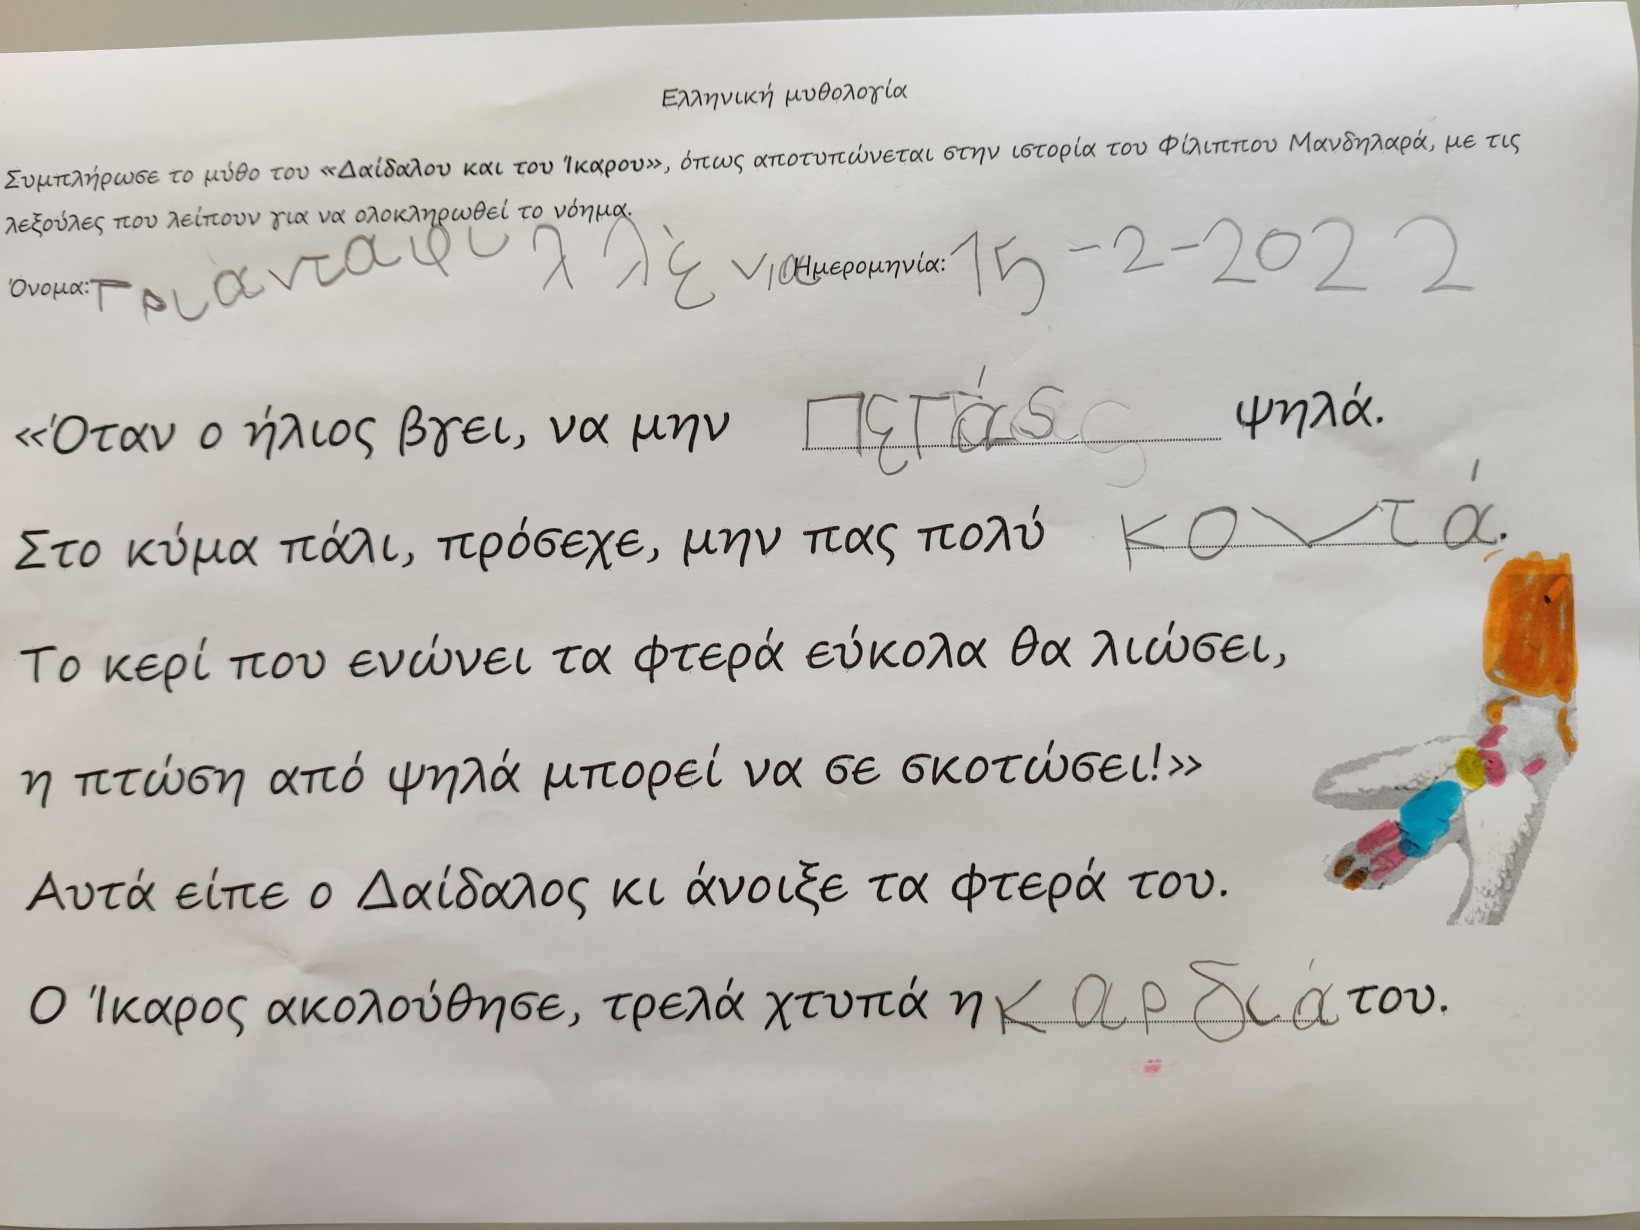 Ελληνική μυθολογία
Συμπλήρωσε το μύθο του «Δαίδαλου και του Ίκαρου», όπως αποτυπώνεται στην ιστορία του Φίλιππου Μανδηλαρά, με τις
λεξούλες που λείπουν για να ολοκληρωθεί το νόημα.
Όνομα: Τριανταφυλλένια Ημερομηνία: 15-2-2022
«Όταν ο ήλιος βγει, να μην πετάς ψηλά.
Στο κύμα πάλι, πρόσεχε, μην πας πολύ κοντά.
Το κερί που ενώνει τα φτερά εύκολα θα λιώσει,
η πτώση από ψηλά μπορεί να σε σκοτώσει!»
Αυτά είπε ο Δαίδαλος κι άνοιξε τα φτερά του.
Ο Ίκαρος ακολούθησε, τρελά χτυπά η καρδιά του.